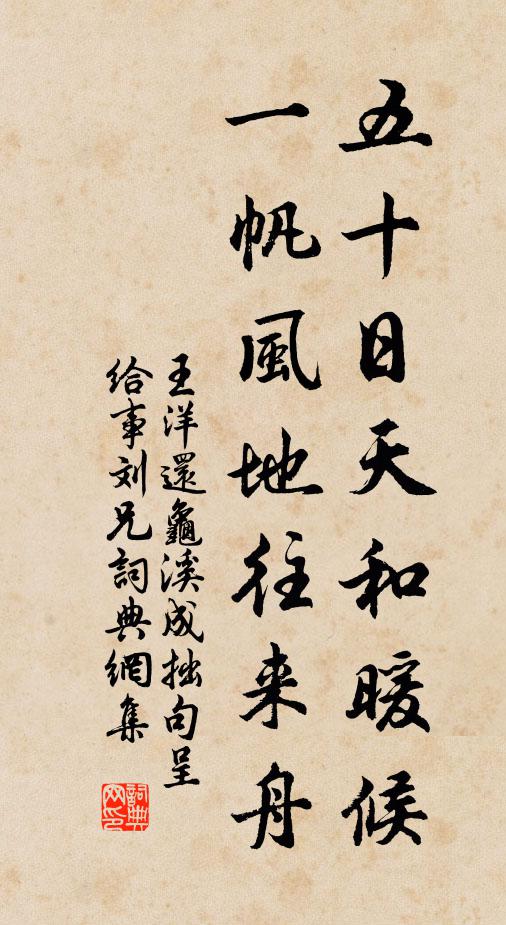 五十日天和暖候
一帆風地往来舟
王洋還龜溪成拙句呈
给事刘兄詞典網集
詞典网印